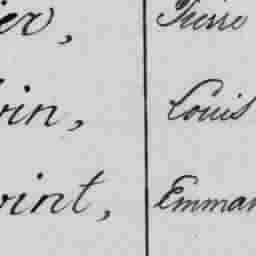 er, Pierre
in, Louis
vint, Emman